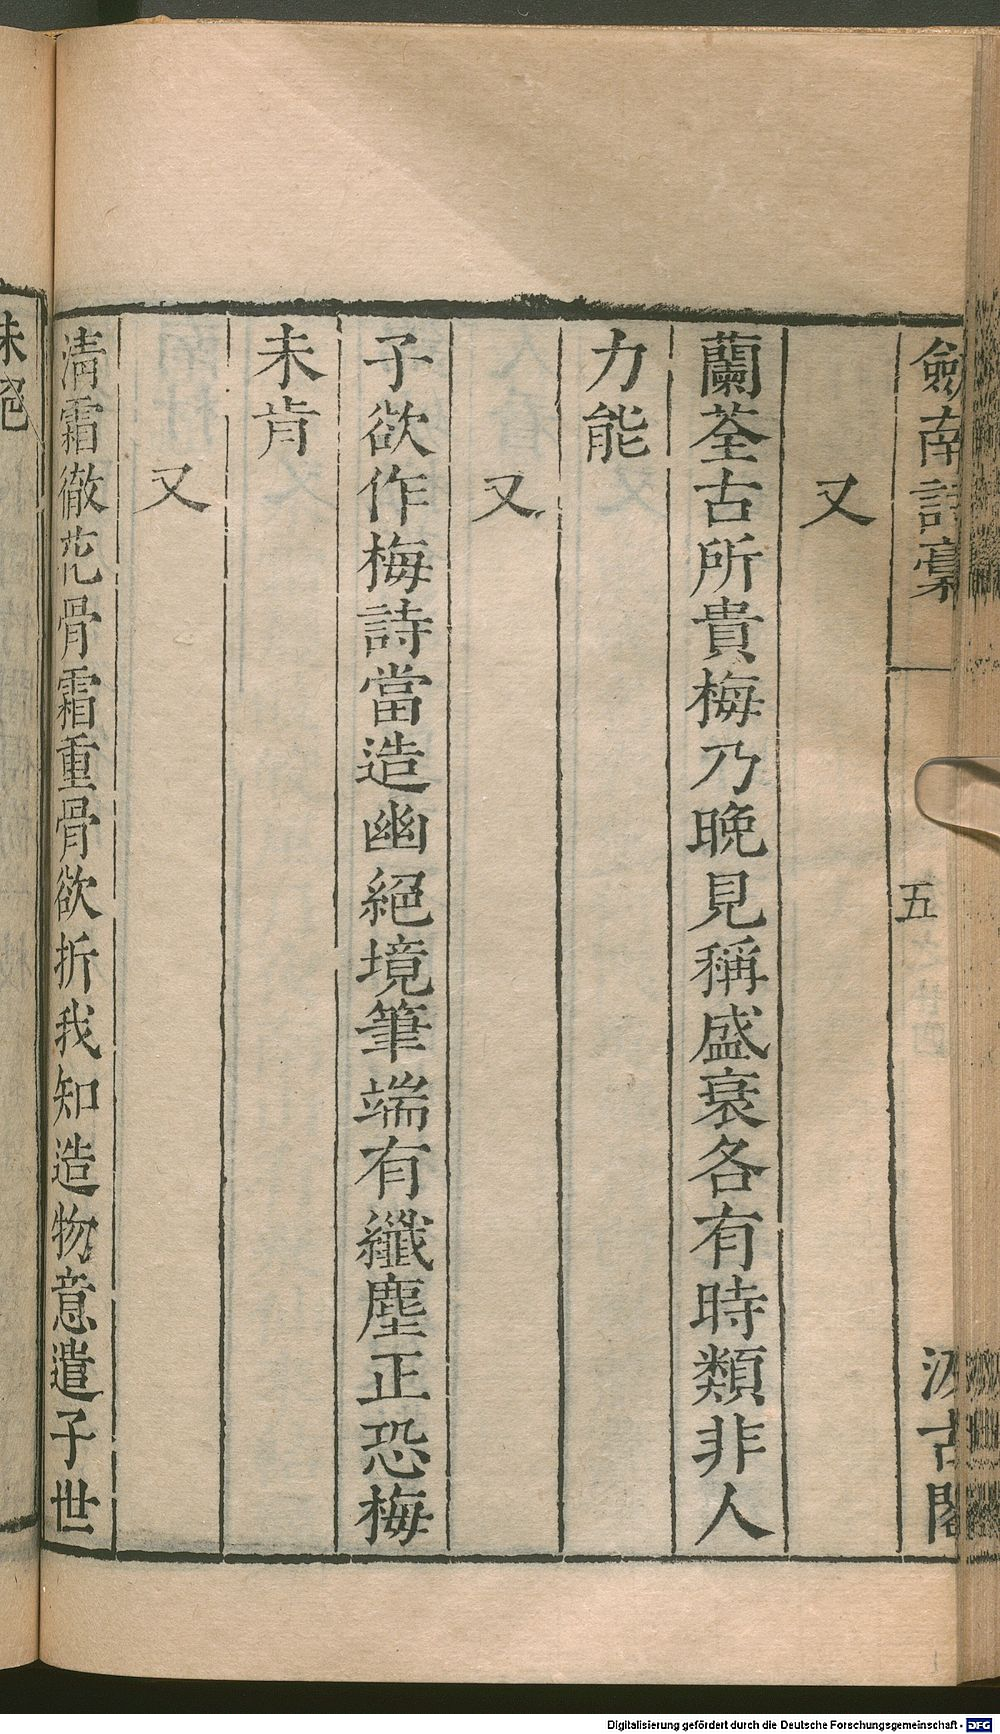 劍南詩稾
五
汲古閣
又
蘭荃古所貴梅乃晚見稱盛衰各有時類非人
力能
又
子欲作梅詩當造幽絕境筆端有纖塵正恐梅
未肯
又
清霜徹花骨霜重骨欲折我知造物意遣子世
Digitalisierung gefördert durch die Deutsche Forschungsgemeinschaft - DFG